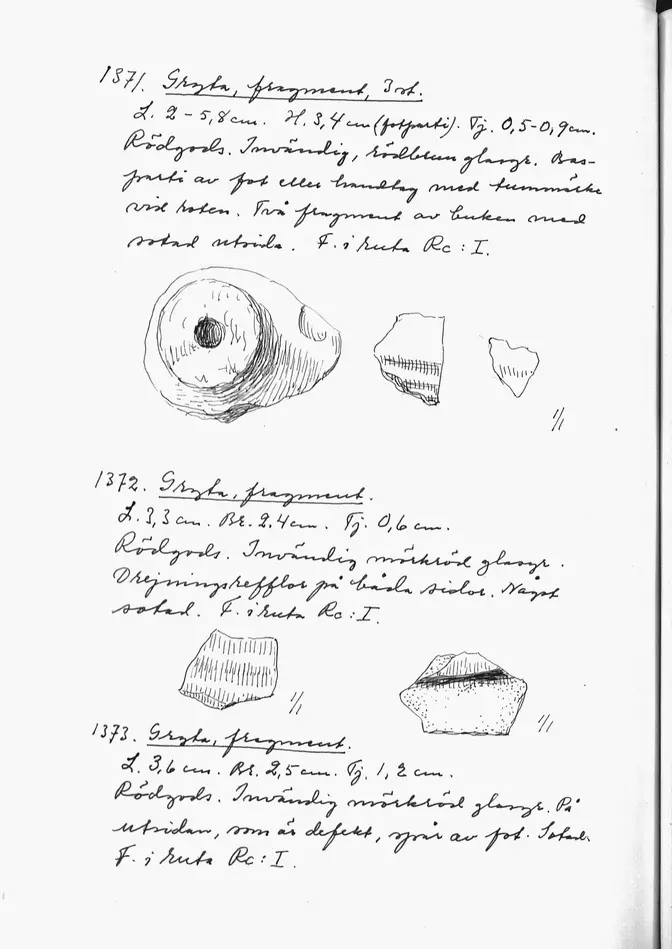 1371. Gryta, fragment, 3 st.
L. 2-5,8 cm. H. 3,4 cm (fotparti). Tj. 0,5-0,9 cm.
Rödgods. Invändig, rödbrun glasyr. Bas-
parti av fot eller handtag med tummärke
vid roten. Två fragment av buken med
sotad utsida. F. i ruta Rc: I.
1/1
1372. Gryta, fragment.
L. 3,3 cm. Br. 2,4 cm. Tj. 0,6 cm.
Rödgods. Invändig mörkröd glasyr.
Drejningsrefflor på båda sidor. Något
sotad. F. i ruta Rc: I.
1/1
1/1
1373. Gryta, fragment.
L. 3,6 cm. Br. 2,5 cm. Tj. 1,2 cm.
Rödgods. Invändig mörkröd glasyr. På
utsidan, som är defekt, spår av fot. Sotad.
F. i ruta Rc: I.